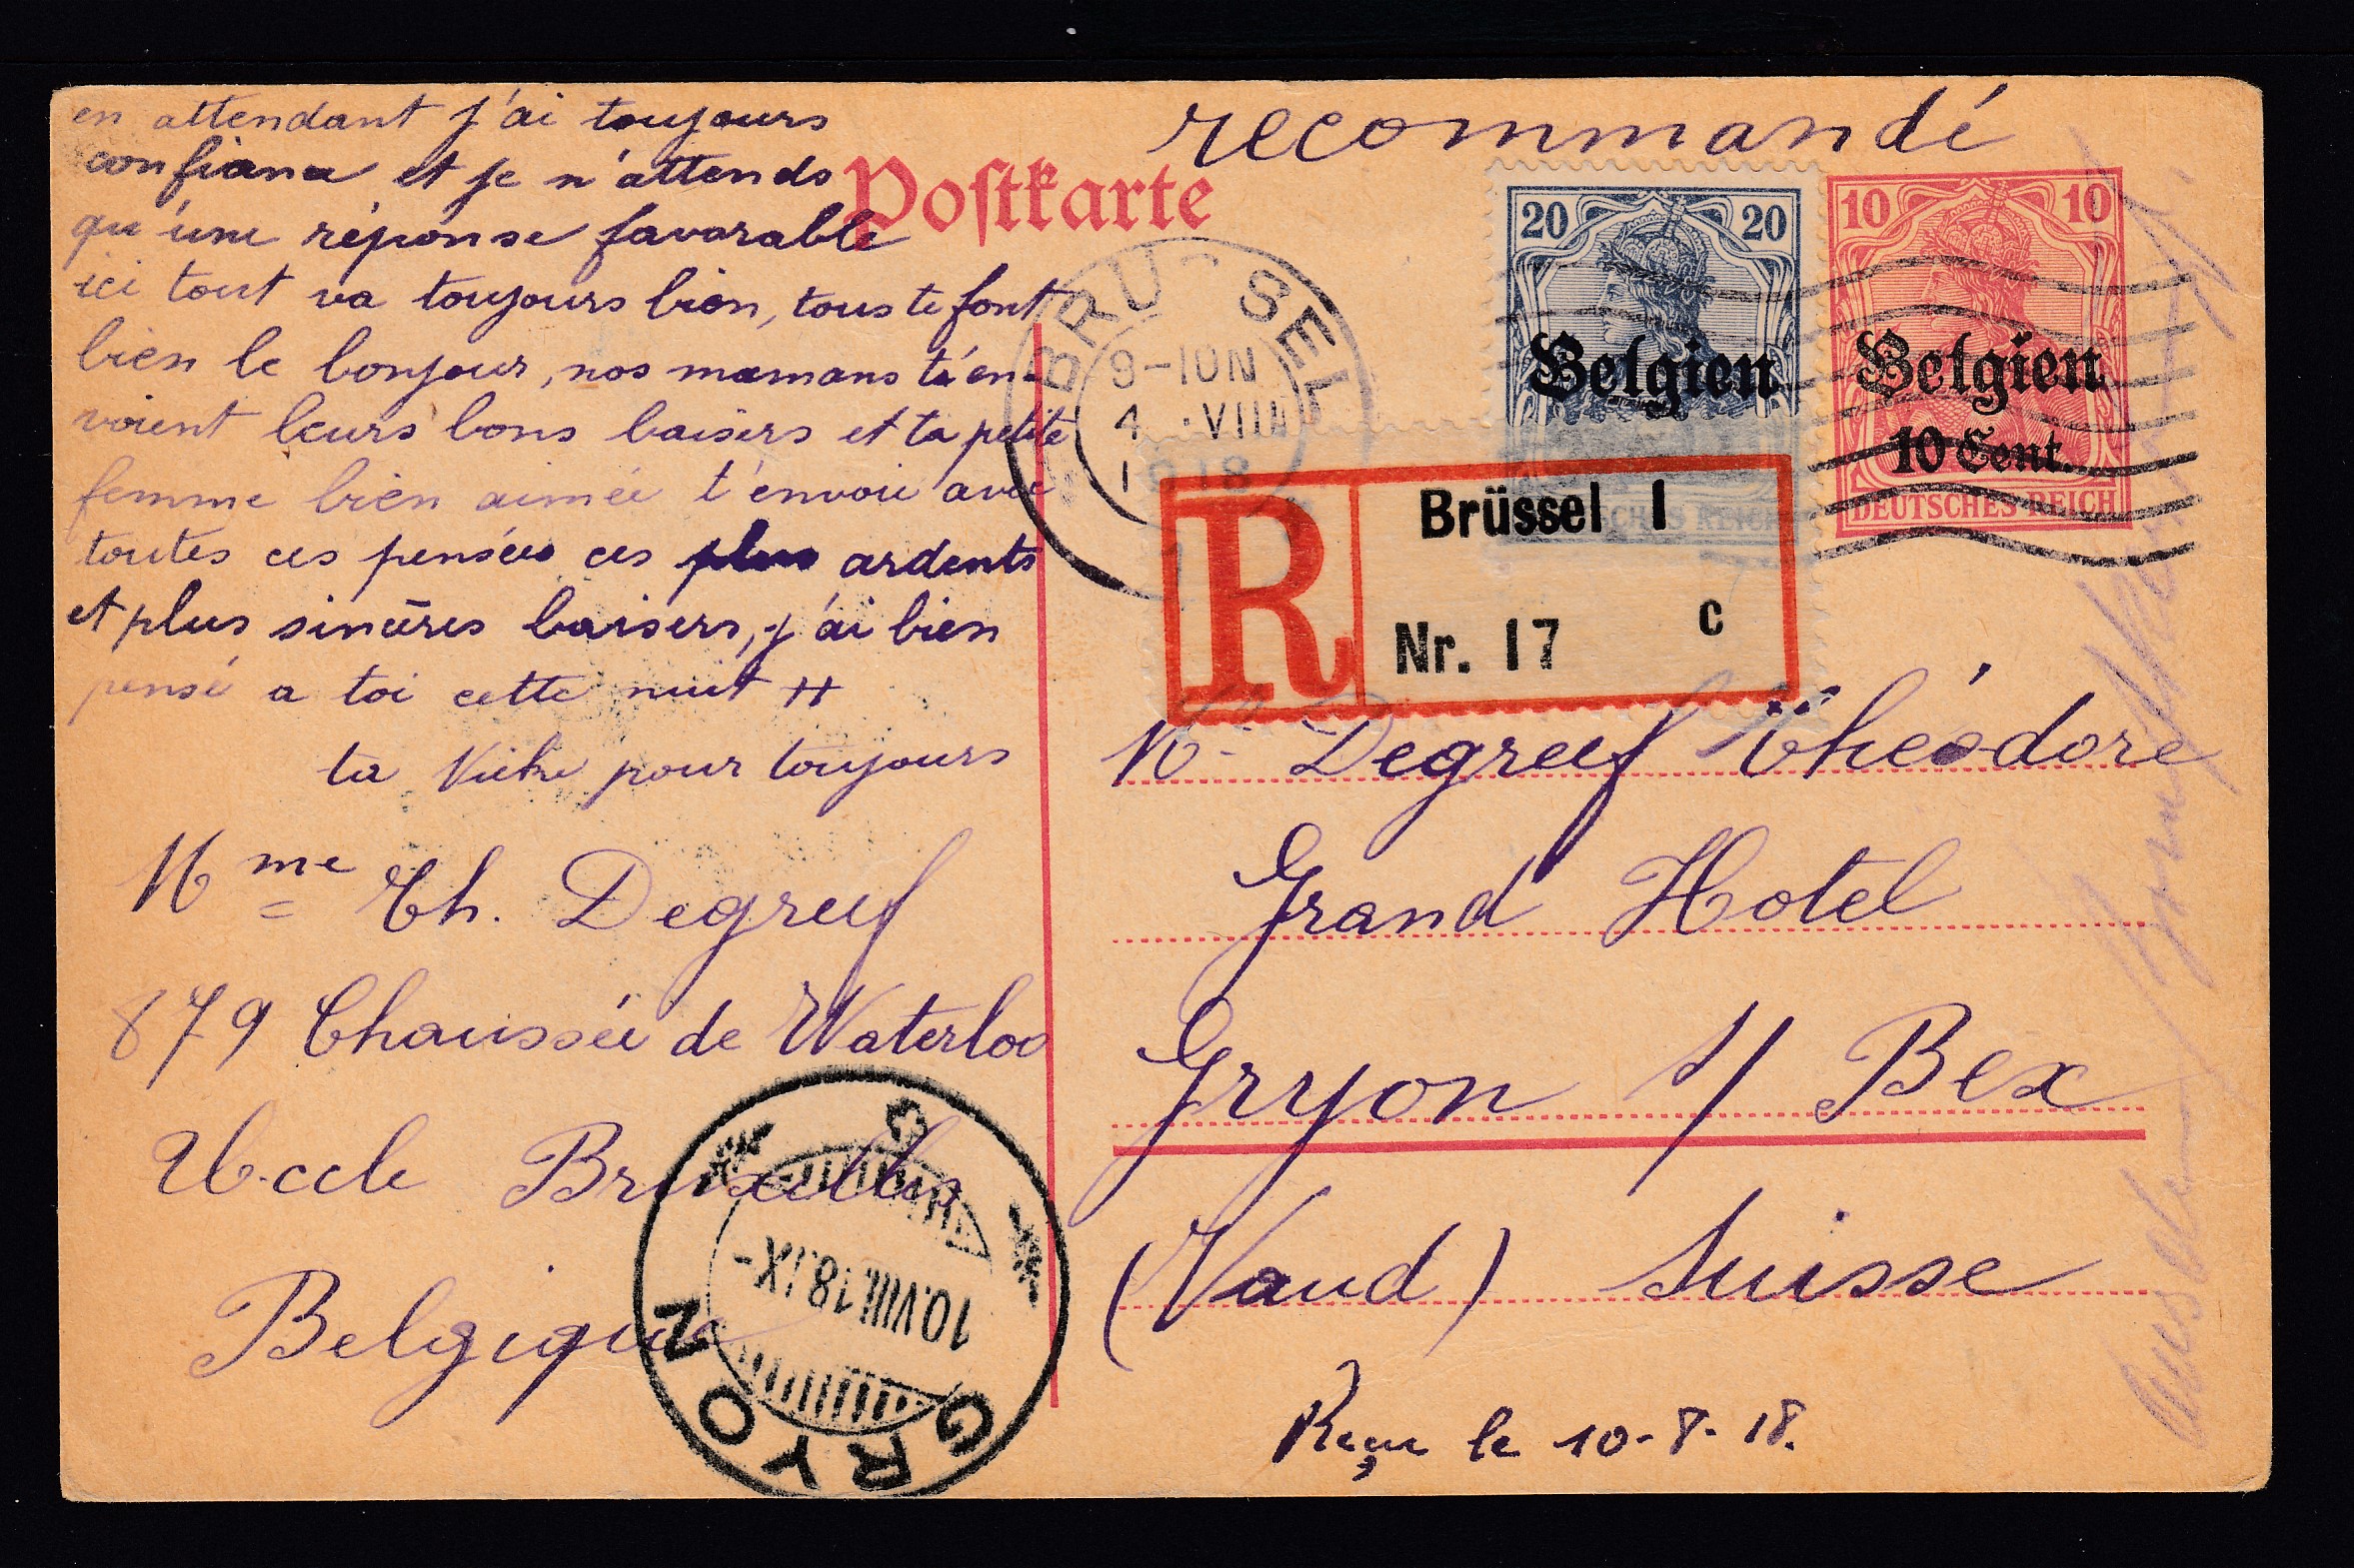 en attendant j'ai toujours
confiance et je n'attends
qu'une réponse favorable
ici tout va toujours bien, tous te font
bien le bonjour, nos mamans t'en-
voient leurs bons baisers et ta petite
femme bien aimée t'envoie avec
toutes ces pensées ces plus ardents
et plus sincères baisers, j'ai bien
pensé a toi cette nuit
ta pour toujours
Mme Th. Degreef
879 Chaussée de Waterloo
Uccle Bruxelles
Belgique
GRYON
10.VIII.18.IX-
recommandé
Postkarte
BRUSSEL
9-10N
4 VIII
1918
20 20
Belgien
10 10
Belgien
10 Cent.
DEUTSCHES REICH
R
Brüssel 1
Nr. 17 c
Mr Degreef Théodore
Grand Hotel
Gryon s/ Bex
(Vaud) Suisse
Reçue le 10-8-18.